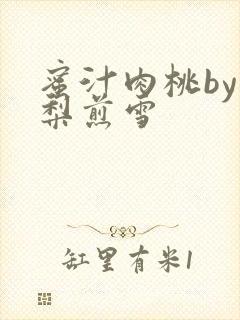 蜜汁肉桃by
梨煎雪
缸里有米1